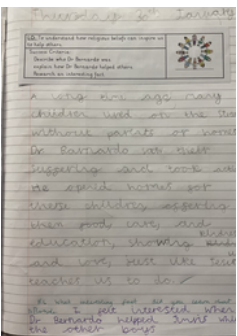 Thursday 30th January
L.O. To understand how religious beliefs can inspire us
to help others.
Success Criteria:
Describe who Dr Barnardo was
explain how Dr Barnardo helped others
Research an interesting fact.
A long time ago many
children lived on the
without parents or homes
Dr Barnardo saw their
Suffering and took
He opend homes for
these children offering
them food, care, and
education, showing
and love, just like
teaches us to do.
interesting fact did you learn
I felt interested when
Dr Bernardo helped
the other boys